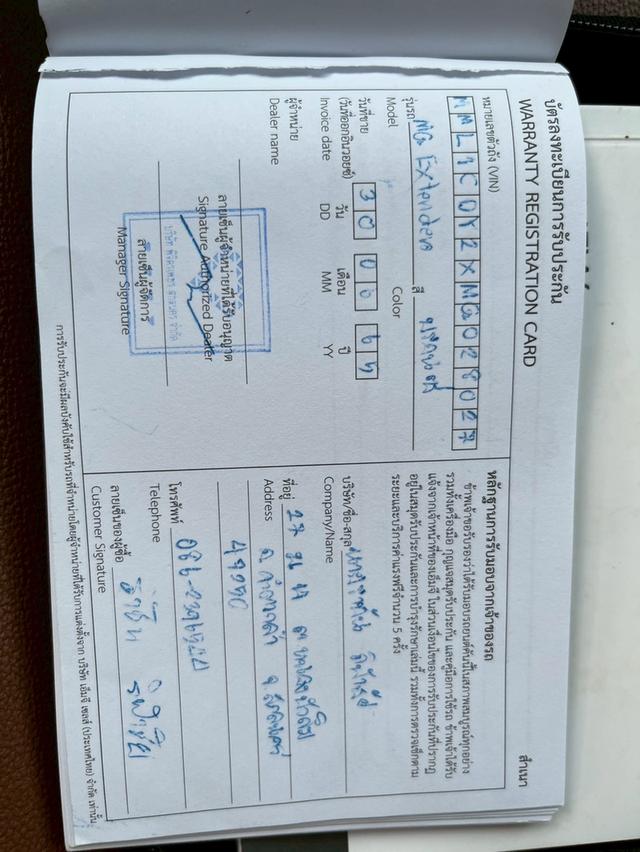 บัตรลงทะเบียนการรับประกัน
WARRANTY REGISTRATION CARD
หมายเลขตัวถัง (VIN)
รุ่นรถ MG Extender สี
Model Color
วันที่ขาย
(วันที่ออกอินวอยซ์)
Invoice date
30 06 65
วัน เดือน ปี
DD MM YY
ผู้จำหน่าย
Dealer name
ลายเซ็นผู้จำหน่ายที่ได้รับอนุญาต
Signature Authorized Dealer
ลายเซ็นผู้จัดการ
Manager Signature
สำเนา
หลักฐานการรับมอบจากเจ้าของรถ
ข้าพเจ้าขอรับรองว่าได้รับมอบรถยนต์คันนี้ในสภาพสมบูรณ์ทุกอย่าง
รวมทั้งเครื่องมือ กุญแจสมุดรับประกัน และคู่มือการใช้รถ ข้าพเจ้าได้รับ
แจ้งจากเจ้าหน้าที่ของเอ็มจี ในส่วนเงื่อนไขของการรับประกันที่ปรากฏ
อยู่ในสมุดรับประกันและการบำรุงรักษาเล่มนี้ รวมทั้งการตรวจเช็กตาม
ระยะและบริการค่าแรงฟรีจำนวน 5 ครั้ง
บริษัท/ชื่อ-สกุล
Company/Name
ที่อยู่
Address
โทรศัพท์
Telephone
ลายเซ็นของผู้ซื้อ
Customer Signature
การรับประกันจะมีผลบังคับใช้สำหรับรถที่จำหน่ายโดยผู้จำหน่ายที่ได้รับการแต่งตั้งจาก บริษัท เอ็มจี เซลส์ (ประเทศไทย) จำกัด เท่านั้น